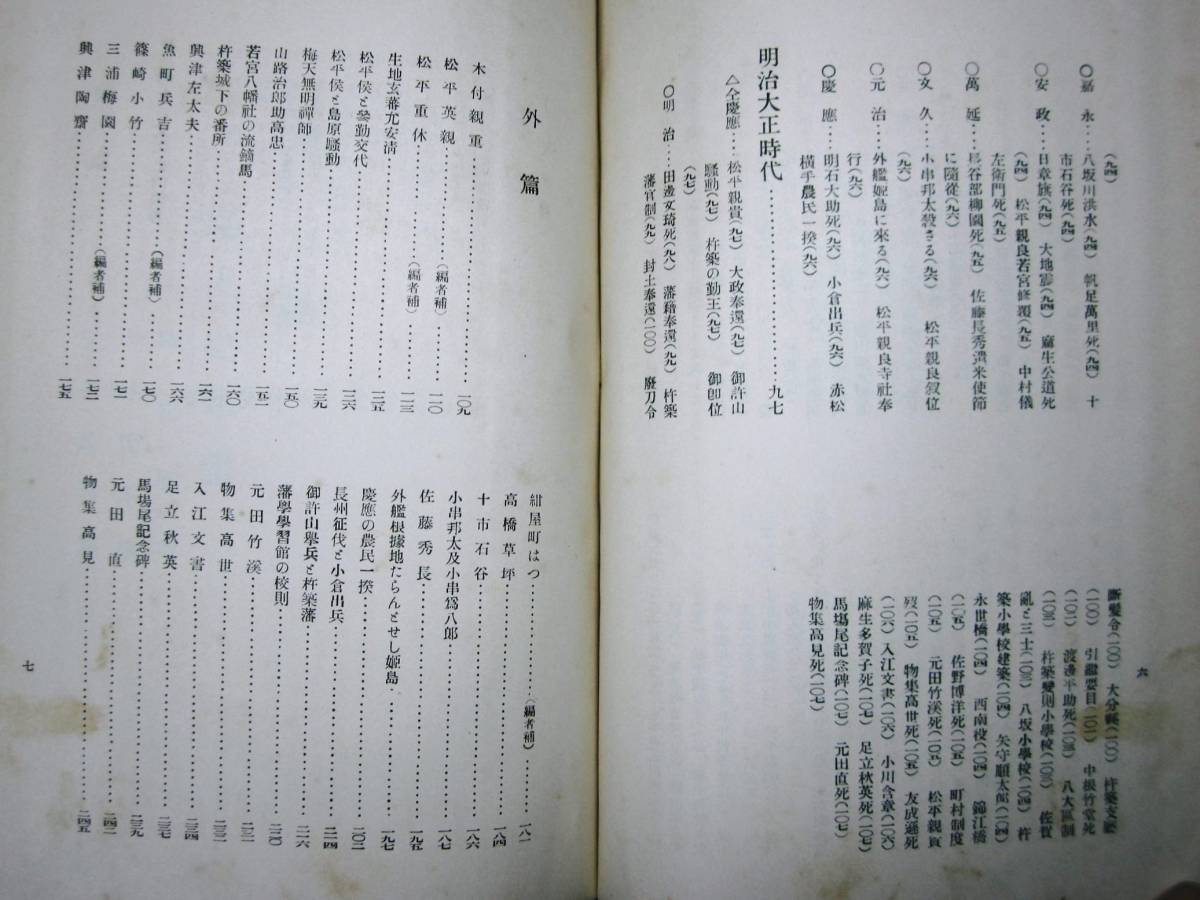 (九四)
○嘉永……八坂川洪水(九四) 帆足萬里死(九四) 十
市石谷死(九四)
○安政……日章旗(九四) 大地震(九四) 麻生公道死
(九四) 松平親良若宮修覆(九五) 中村儀
左衛門死(九五)
○萬延……長谷部柳園死(九五) 佐藤長秀遣米使節
に隨從(九六)
○文久……小串邦太殺さる(九六) 松平親良叙位
(九六)
○元治……外艦姫島に來る(九六) 松平親良寺社奉
行(九六)
○慶應……明石大助死(九六) 小倉出兵(九六) 赤松
橫手農民一揆(九六)
明治大正時代………九七
△仝慶應……松平親貴(九七) 大政奉還(九七) 御許山
騷動(九七) 杵築の勤王(九七) 御卽位
(九七)
○明治……田邊文琦死(九八) 藩籍奉還(九九) 杵築
藩官制(九九) 封土奉還(一〇〇) 廢刀令
六
斷髮令(一〇〇) 大分縣(一〇〇) 杵築支廳
(一〇〇) 引繼要目(一〇一) 中根竹堂死
(一〇二) 渡邊平助死(一〇三) 八大區制
(一〇三) 杵築變則小學校(一〇三) 佐賀
亂と三士(一〇三) 八坂小學校(一〇四) 杵
築小學校建築(一〇四) 矢守順太郎(一〇四)
永世橋(一〇四) 西南役(一〇四) 錦江橋
(一〇五) 佐野博洋死(一〇五) 町村制度
(一〇五) 元田竹溪死(一〇五) 松平親貴
歿(一〇五) 物集高世死(一〇五) 友成遜死
(一〇六) 入江文書(一〇六) 小川含章(一〇六)
麻生多賀子死(一〇七) 足立秋英死(一〇七)
馬場尾記念碑(一〇七) 元田直死(一〇七)
物集高見死(一〇七)
外篇
木付親重………一〇九
松平英親………(編者補)…一一〇
松平重休………(編者補)…一一三
生地玄蕃允安淸………一二五
松平侯と參勤交代………一二六
松平侯と島原騷動………一三九
梅天無明禪師………一五〇
山路治郎助高忠………一五一
若宮八幡社の流鏑馬………一五二
杵築城下の番所………一六〇
興津左太夫………一六一
魚町兵吉………一六六
篠崎小竹………(編者補)…一七〇
三浦梅園………一七一
興津陶齋………(編者補)…一七二
………一七五
紺屋町はつ………(編者補)…一八一
高橋草坪………一八四
十市石谷………一八六
小串邦太及小串爲八郎………一八七
佐藤秀長………一九五
外艦根據地たらんとせし姬島………一九七
慶應の農民一揆………二〇二
長州征伐と小倉出兵………二一四
御許山擧兵と杵築藩………二一六
藩學學習館の校則………二二〇
元田竹溪………二三一
物集高世………二三二
入江文書………二三四
足立秋英………二三七
馬場尾記念碑………二三九
元田直………二四二
物集高見………二四五
七